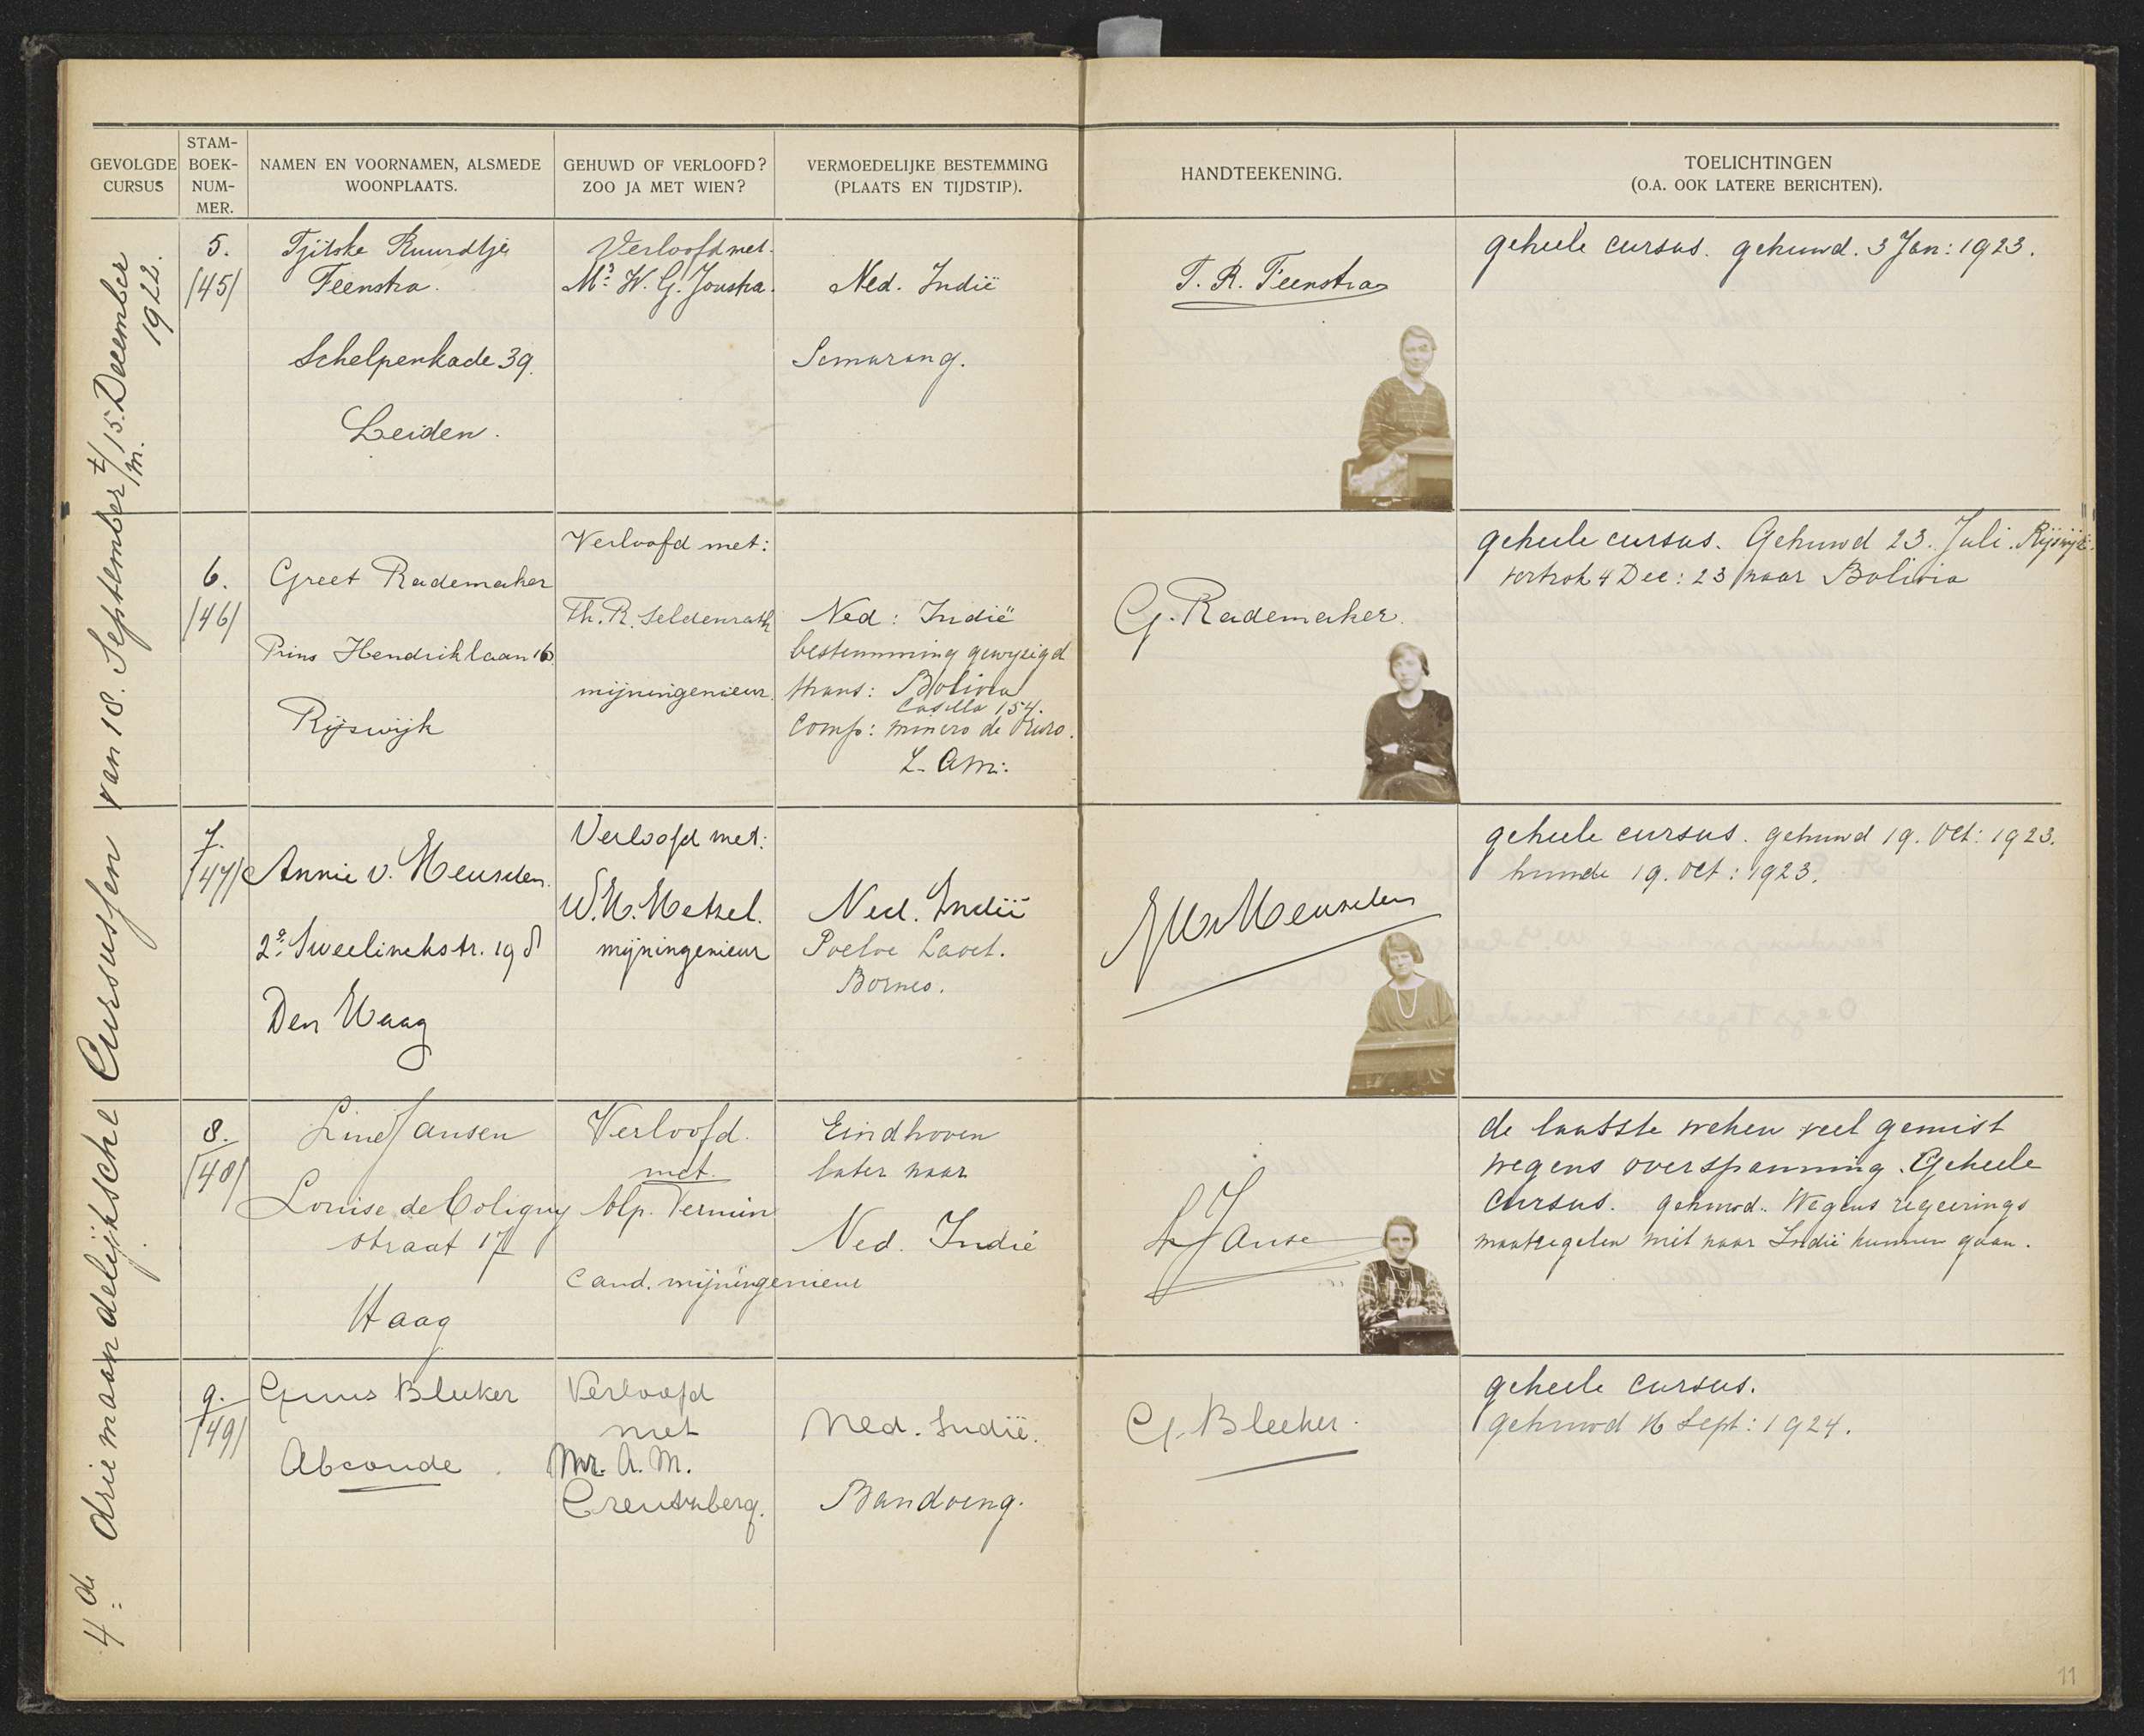 GEVOLGDE CURSUS
STAM-BOEK-NUM-MER.
NAMEN EN VOORNAMEN, ALSMEDE WOONPLAATS.
GEHUWD OF VERLOOFD? ZOO JA MET WIEN?
VERMOEDELIJKE BESTEMMING (PLAATS EN TIJDSTIP).
HANDTEEKENING.
TOELICHTINGEN (O.A. OOK LATERE BERICHTEN).
4de driemaandelijksche Cursussen van 18. September t/m. 15. December 1922.
5.
/45/
Tjitske Ruurdtje
Feenstra.
Schelpenkade 39.
Leiden.
Verloofd met.
Mr. H. G. Joustra.
Ned. Indië
Semarang.
T. R. Feenstra
geheele cursus. gehuwd. 3 Jan: 1923.
6.
/46/
Greet Rademaker
Prins Hendriklaan 16
Rijswijk
Verloofd met:
Th. R. Seldenrath
mijningenieur.
Ned: Indië
bestemming gewyzigd
thans: Bolivia
Casilla 154.
Comp: minero de Oruro.
Z. Am:
G. Rademaker.
geheele cursus. Gehuwd 23. Juli. Rijswijk.
vertrok 4 Dec: 23 naar Bolivia
7.
/47/
Annie v. Heusden.
2e Sweelinckstr. 198
Den Haag
Verloofd met:
W. H. Hetzel.
mijningenieur
Ned. Indië
Poeloe Laoet.
Borneo.
geheele cursus. gehuwd 19. Oct: 1923.
huwde 19. Oct: 1923.
8.
/48/
Line Jansen
Louise de Coligny
straat 17
Haag
Verloofd.
met.
Alp. Termin
cand. mijningenieur
Eindhoven
later naar
Ned. Indië
de laatste weken veel gemist
wegens overspanning. Geheele
cursus. gehuwd. Wegens regeerings
maatregelen niet naar Indië kunnen gaan.
9.
/49/
Guus Bleeker
Abcoude.
Verloofd
met
Mr. A. M.
Creutzberg.
Ned. Indië.
Bandoeng.
G. Bleeker.
geheele cursus.
gehuwd 16 Sept: 1924.
11